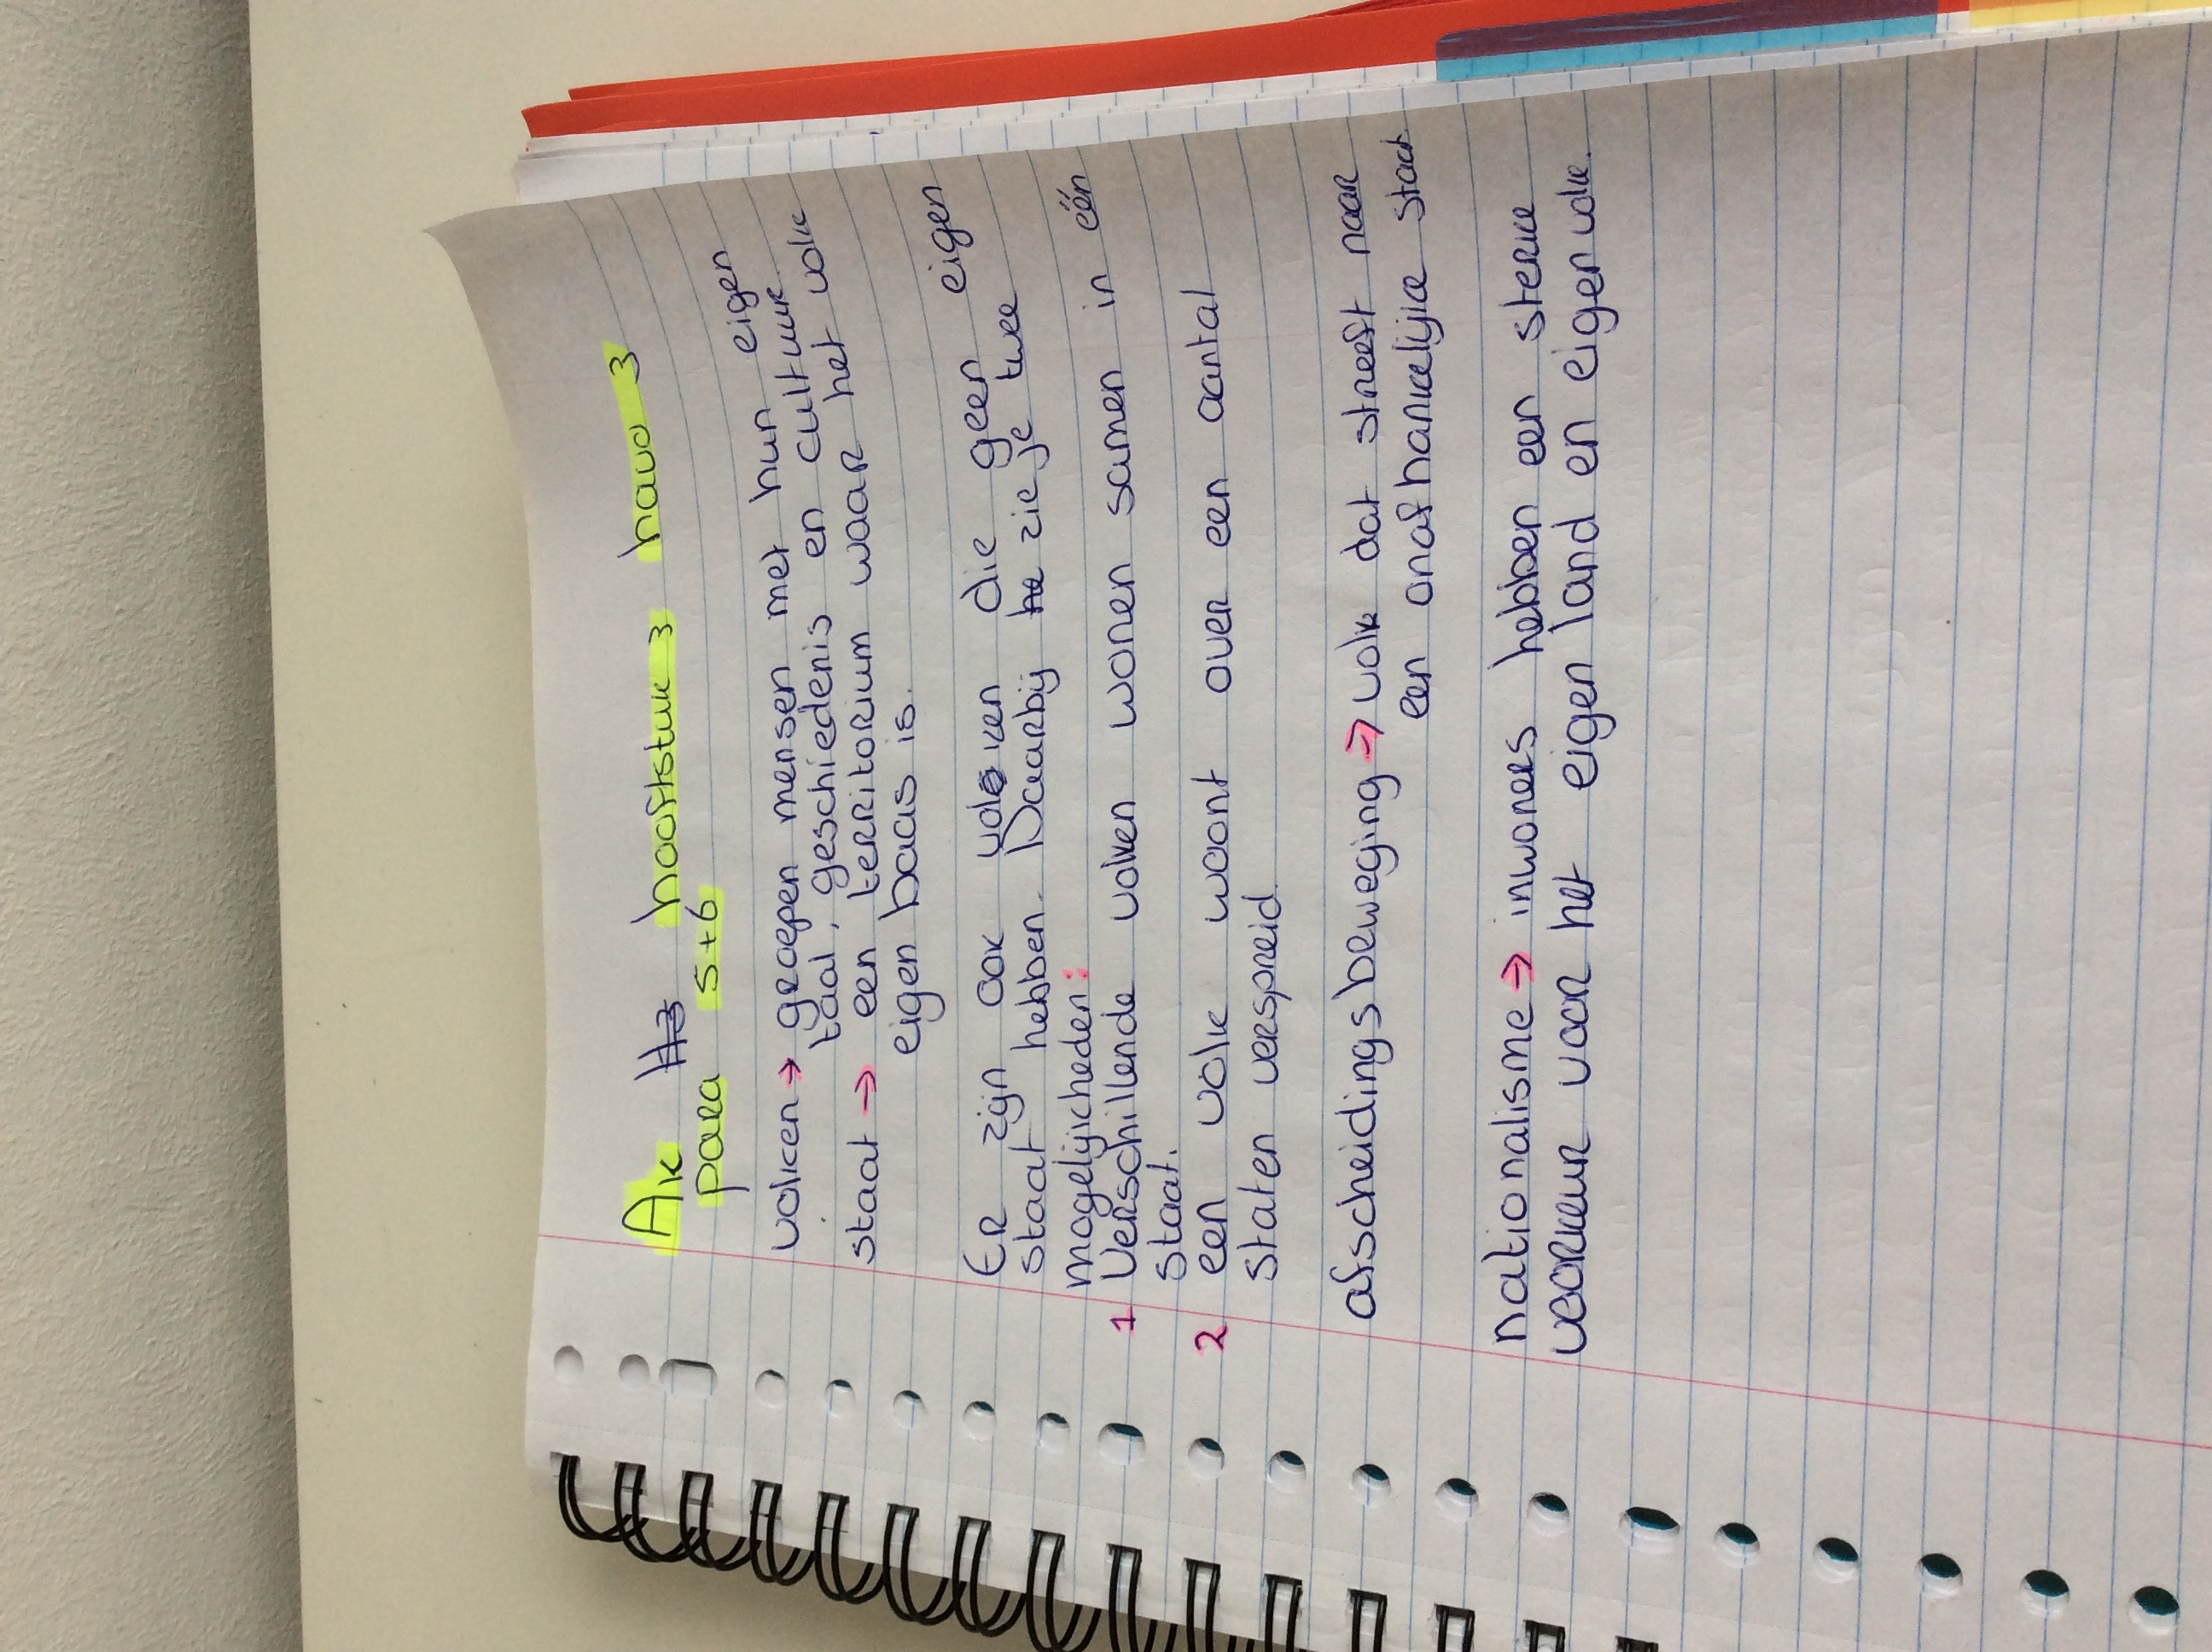 Ak H3 hooftstuk 3 havo 3
para 5+6
volken → groepen mensen met hun eigen
taal, geschiedenis en cultuur.
staat → een territorium waar het volk
eigen baas is.
Er zijn ook volken die geen eigen
staat hebben. Daarbij he zie je twee
mogelijkheden:
1 Verschillende volken wonen samen in één
staat.
2 een volk woont over een aantal
staten verspreid
afscheidingsbeweging → volk dat streeft naar
een onafhankelijke staat
nationalisme → inwoners hebben een sterke
voorkeur voor het eigen land en eigen volk.